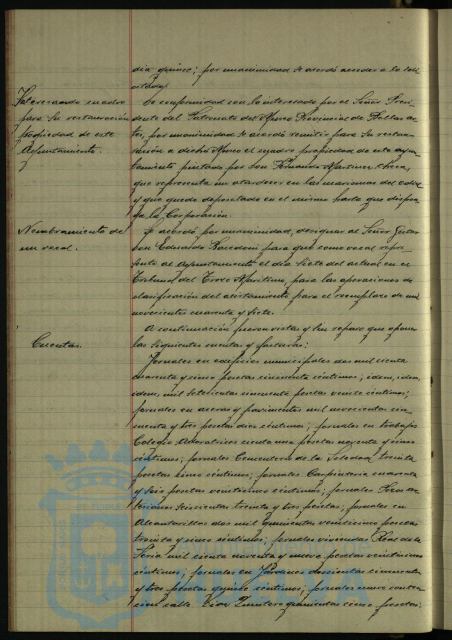 día quince; por unanimidad se acordó acceder a lo soli-
citado.
Interesando cuadro
para su restauración
propiedad de este
Ayuntamiento.
De conformidad con lo interesado por el Señor Presi-
dente del Patronato del Museo Provincial de Bellas Ar-
tes, por unanimidad se acordó remitir para su restau-
ración a dicho Museo el cuadro propiedad de este ayun-
tamiento pintado por Don
que representa un atardecer en las marismas del Odiel
y que quede depositado en el mismo hasta que dispon-
ga la Corporación.
Nombramiento de
un vocal.
Se acordó por unanimidad, designar al Señor Gestor
Don Eduardo para que como vocal repre-
sente al Ayuntamiento el día siete del actual en el
Tribunal del Trozo Marítimo, para las operaciones de
clasificación del alistamiento para el reemplazo de mil
novecientos cuarenta y siete.
Cuentas.
A continuación fueron vistas y sin reparo que oponer
las siguientes cuentas y facturas:
Jornales en edificios municipales dos mil ciento
cuarenta y cinco pesetas cincuenta céntimos; idem, idem,
idem, mil setecientas cincuenta pesetas veinte céntimos;
jornales en aceras y pavimentos mil novecientas cin-
cuenta y tres pesetas diez céntimos; jornales en trabajos
Colegio pesetas noventa y cinco
céntimos; jornales Cementerio de la Soledad treinta
pesetas cinco céntimos; jornales Carpintería cuarenta
y seis pesetas veinticinco céntimos; jornales
seiscientas treinta y tres pesetas; jornales en
Alcantarillas dos mil quinientas veinticinco pesetas
treinta y cinco céntimos; jornales viviendas Real de la
Feria mil ciento noventa y nueve pesetas veinticinco
céntimos; jornales en Jardines doscientas cincuenta
y tres pesetas quince céntimos; jornales
calle quinientas cinco pesetas;